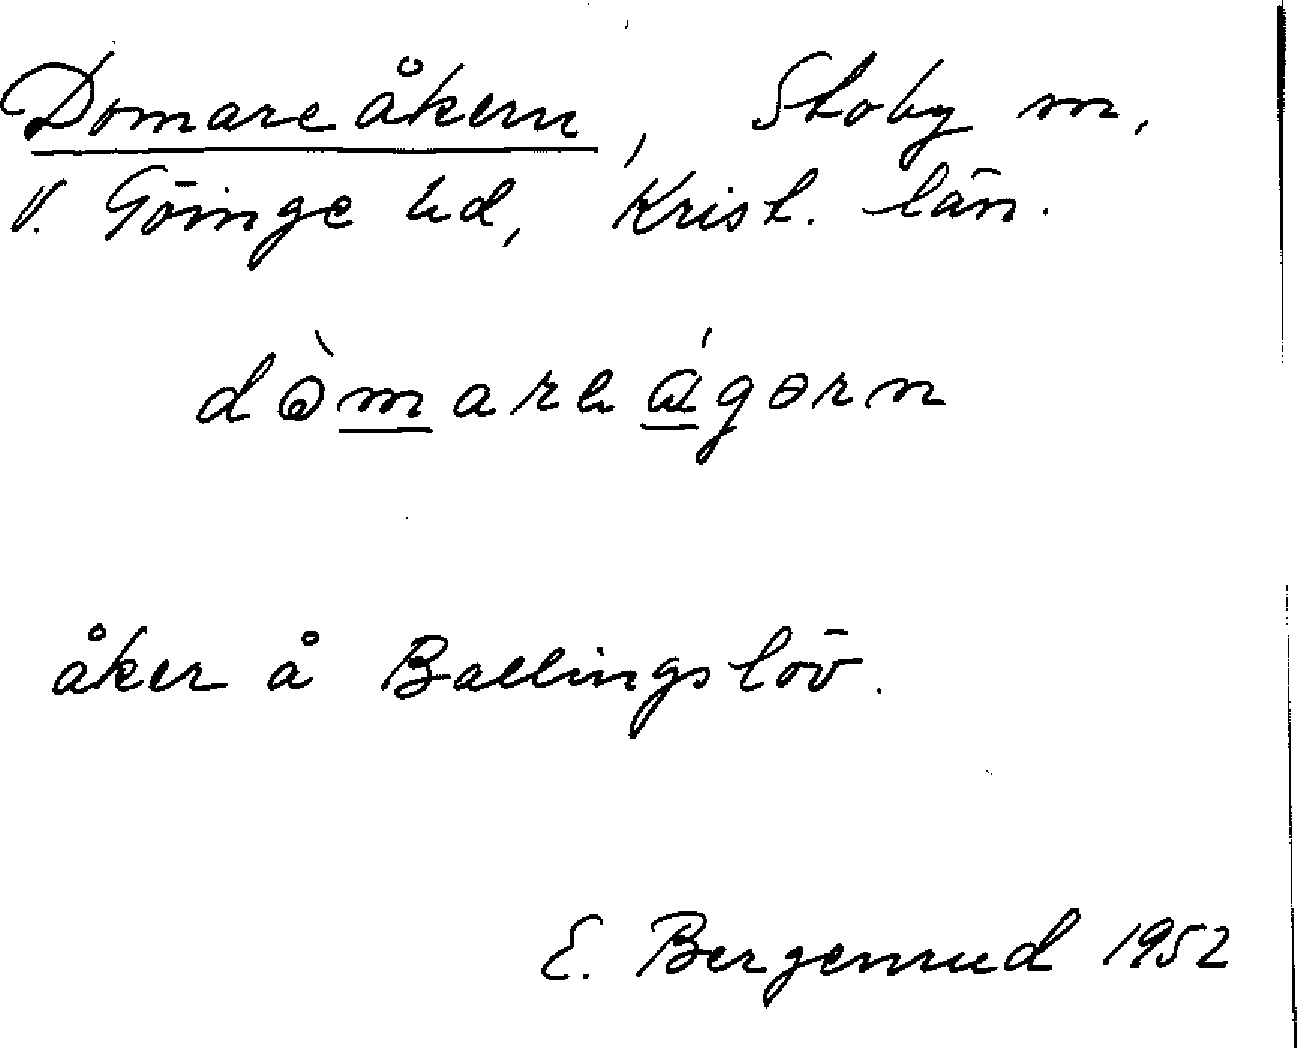 Domareåkern, Stoby sn,
V. Göinge hd, Krist. län.
dòmareágərn
åker å Ballingslöv.
E. Bergenrud 1952